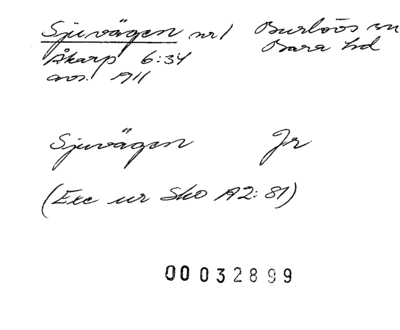 Sjuvägen nr 1 Burlövs sn
Åkarp 6:34 Bara hd
avs. 1911
Sjuvägen Jr
(Exc ur Sko A2:81)
00032899